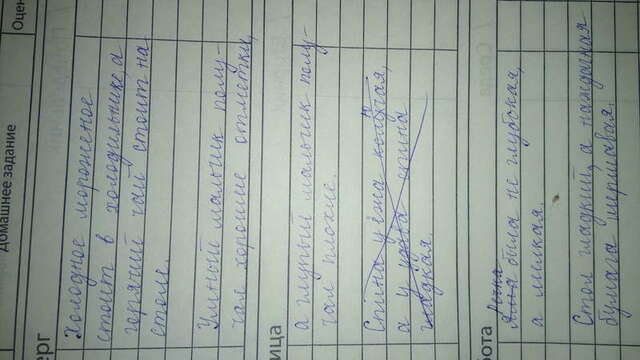 Домашнее задание
Оцен
ерг
Холодное мороженое
стоит в холодильнике а
горячий чай стоит на
столе.
Умный мальчик полу-
чал хорошие отметки,
ица
а глупый мальчик полу-
чал плохие.
Спина у ежа
а у спина
гладкая.
ота
речка
была не глубокая,
а мелкая.
Стол гладкий, а наждачная
бумага шершавая.